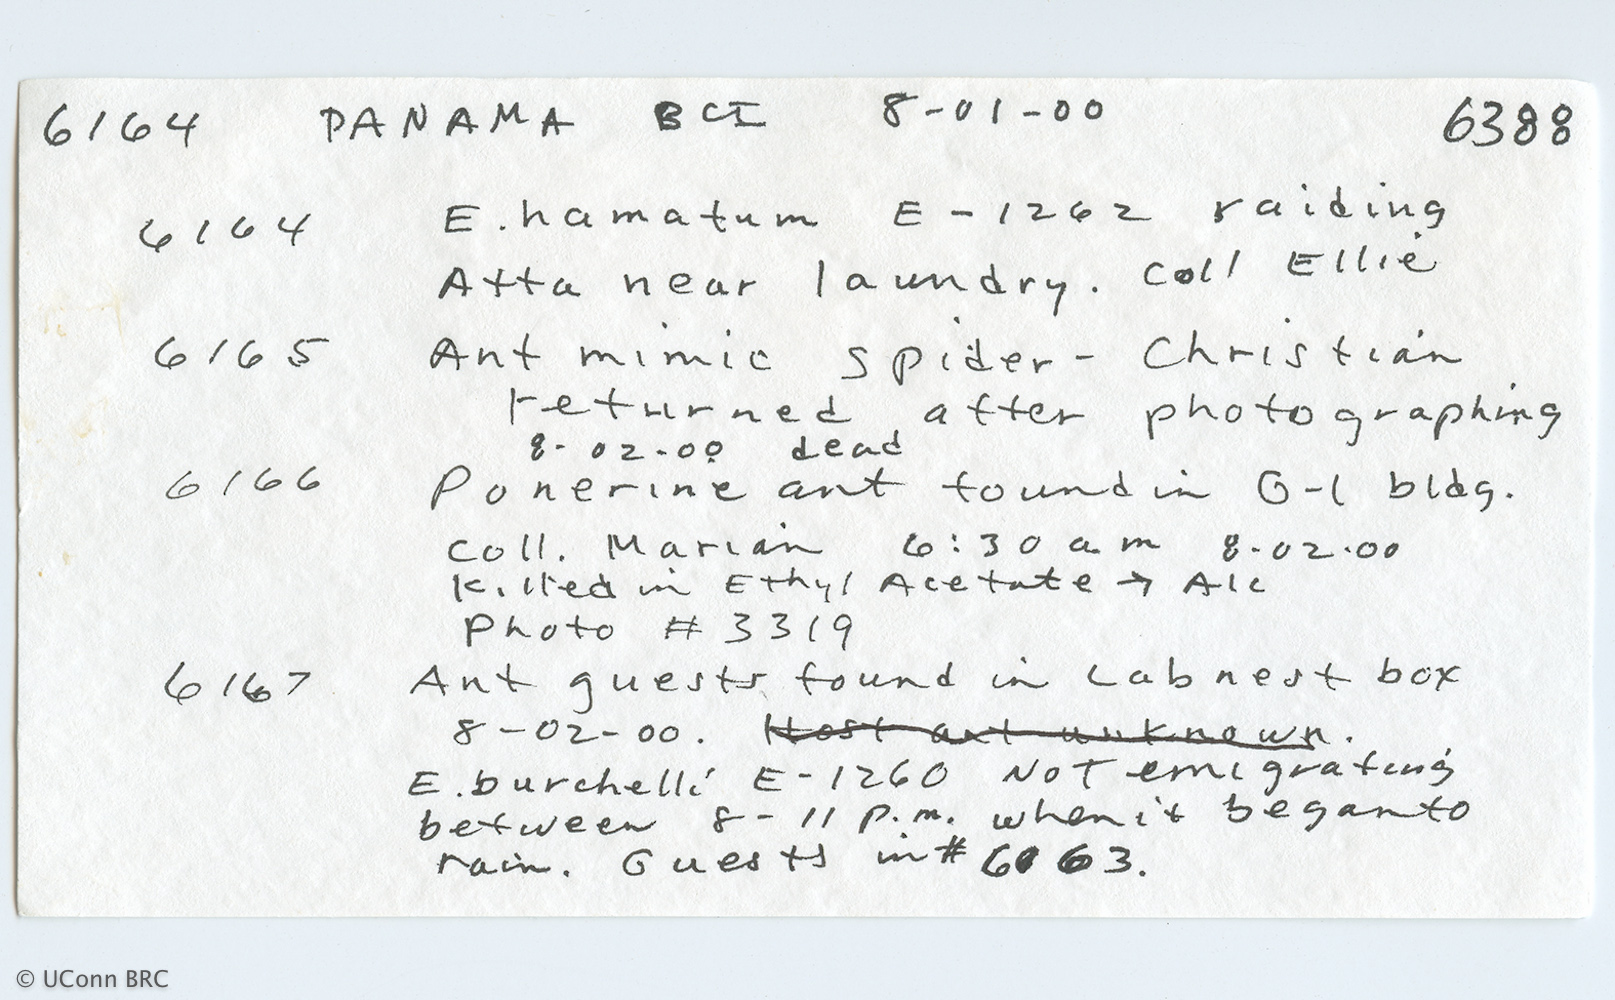 6164 PANAMA BCI 8-01-00 6388
6164 E. hamatum E-1262 raiding
Atta near laundry. Coll Ellie
6165 Ant mimic spider- Christian
returned after photographing
8-02-00 dead
6166 Ponerine ant found in G-1 bldg.
Coll. Marian 6:30 am 8-02-00
Killed in Ethyl Acetate → Alc
Photo # 3319
6167 Ant guests found in Lab nest box
8-02-00. Host ant unknown.
E. burchelli E-1260 NOT emigrating
between 8-11 p.m. when it began to
rain. Guests in # 6163.
© UConn BRC